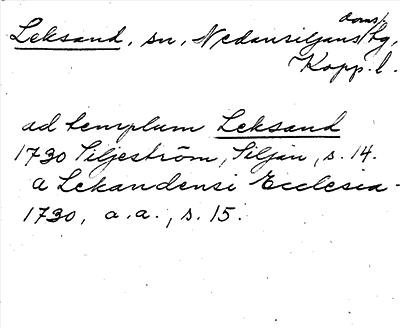 Leksand, sn, Nedansiljans doms/hg,
Kopp. l.
ad templum Leksand
1730 Siljeström, Siljan, s. 14.
a Lekandensi Ecclesia -
1730, a.a., s. 15.